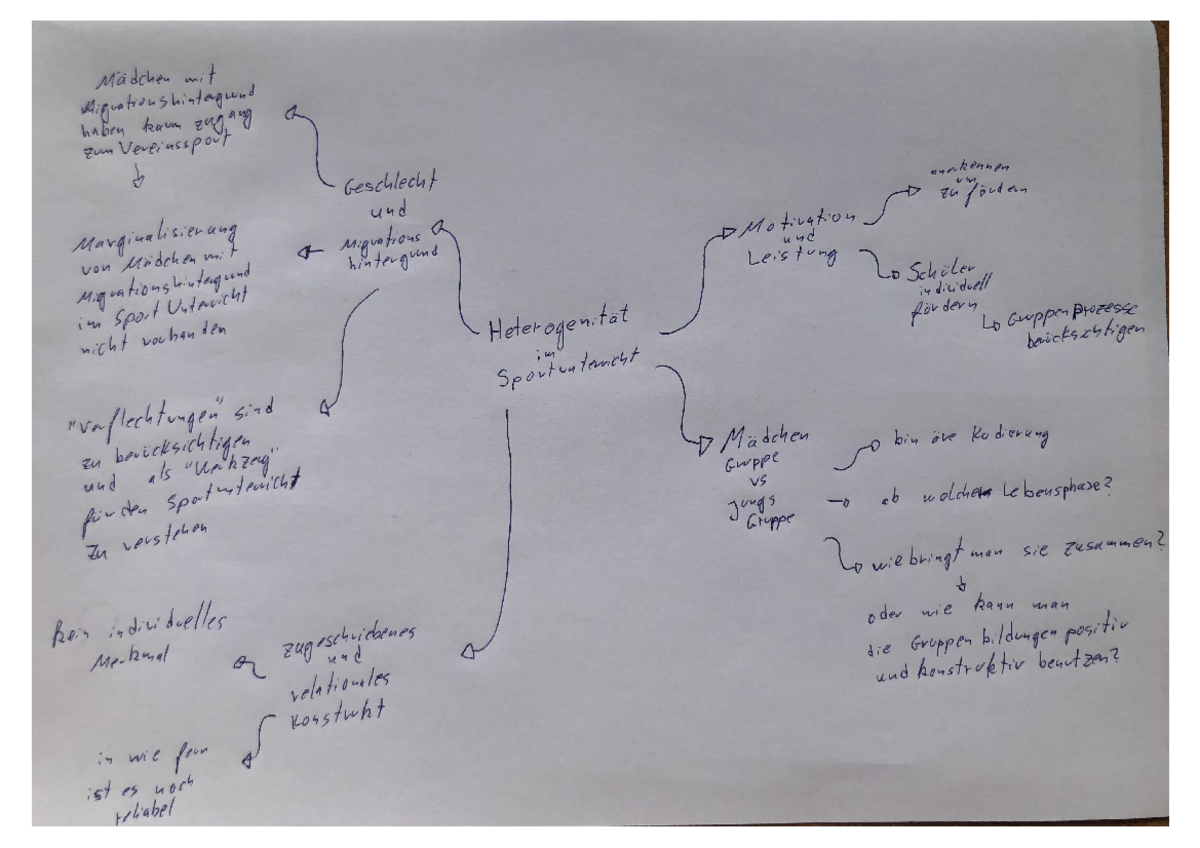 Mädchen mit
Migrationshintergrund
haben kaum zugang
zum Vereinssport
Marginalisierung
von Mädchen mit
Migrationshintergrund
im Sport Unterricht
nicht vorhanden
Geschlecht
und
Migrations
hintergrund
"Verflechtungen" sind
zu berücksichtigen
und als "Werkzeug"
für den Sportunterricht
zu verstehen
Heterogenität
im
Sportunterricht
Motivation
und
Leistung
anerkennen
um
zu fördern
Schüler
individuell
fördern
Gruppenprozesse
berücksichtigen
Mädchen
Gruppe
vs
Jungs
Gruppe
binäre Kodierung
ab welcher Lebensphase?
wie bringt man sie zusammen?
oder wie kann man
die Gruppenbildungen positiv
und konstruktiv benutzen?
zugeschriebenes
und
relationales
Konstrukt
Kein individuelles
Merkmal
in wie fern
ist es noch
reliabel